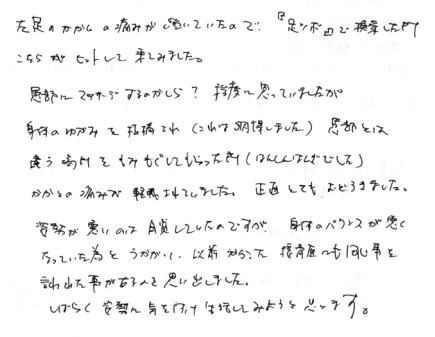 左足のかかとの痛みが続いていたので、『足ツボ』で検索した所
こちらがヒットして来てみました。
患部にマッサージするのかしら？程度に思っていましたが
身体のゆがみを指摘され（これは納得しました）患部とは
違う場所をもみもぐしてもらった所（はんしんはんぎでした）
かかとの痛みが軽減されていました。正直とてもおどろきました。
姿勢が悪いのは自負していたのですが、身体のバランスが悪く
なっていた為とうかがい、以前かかった接骨医にも同じ事を
言われた事があると思い出しました。
しばらく姿勢に気を付け生活してみようと思います。